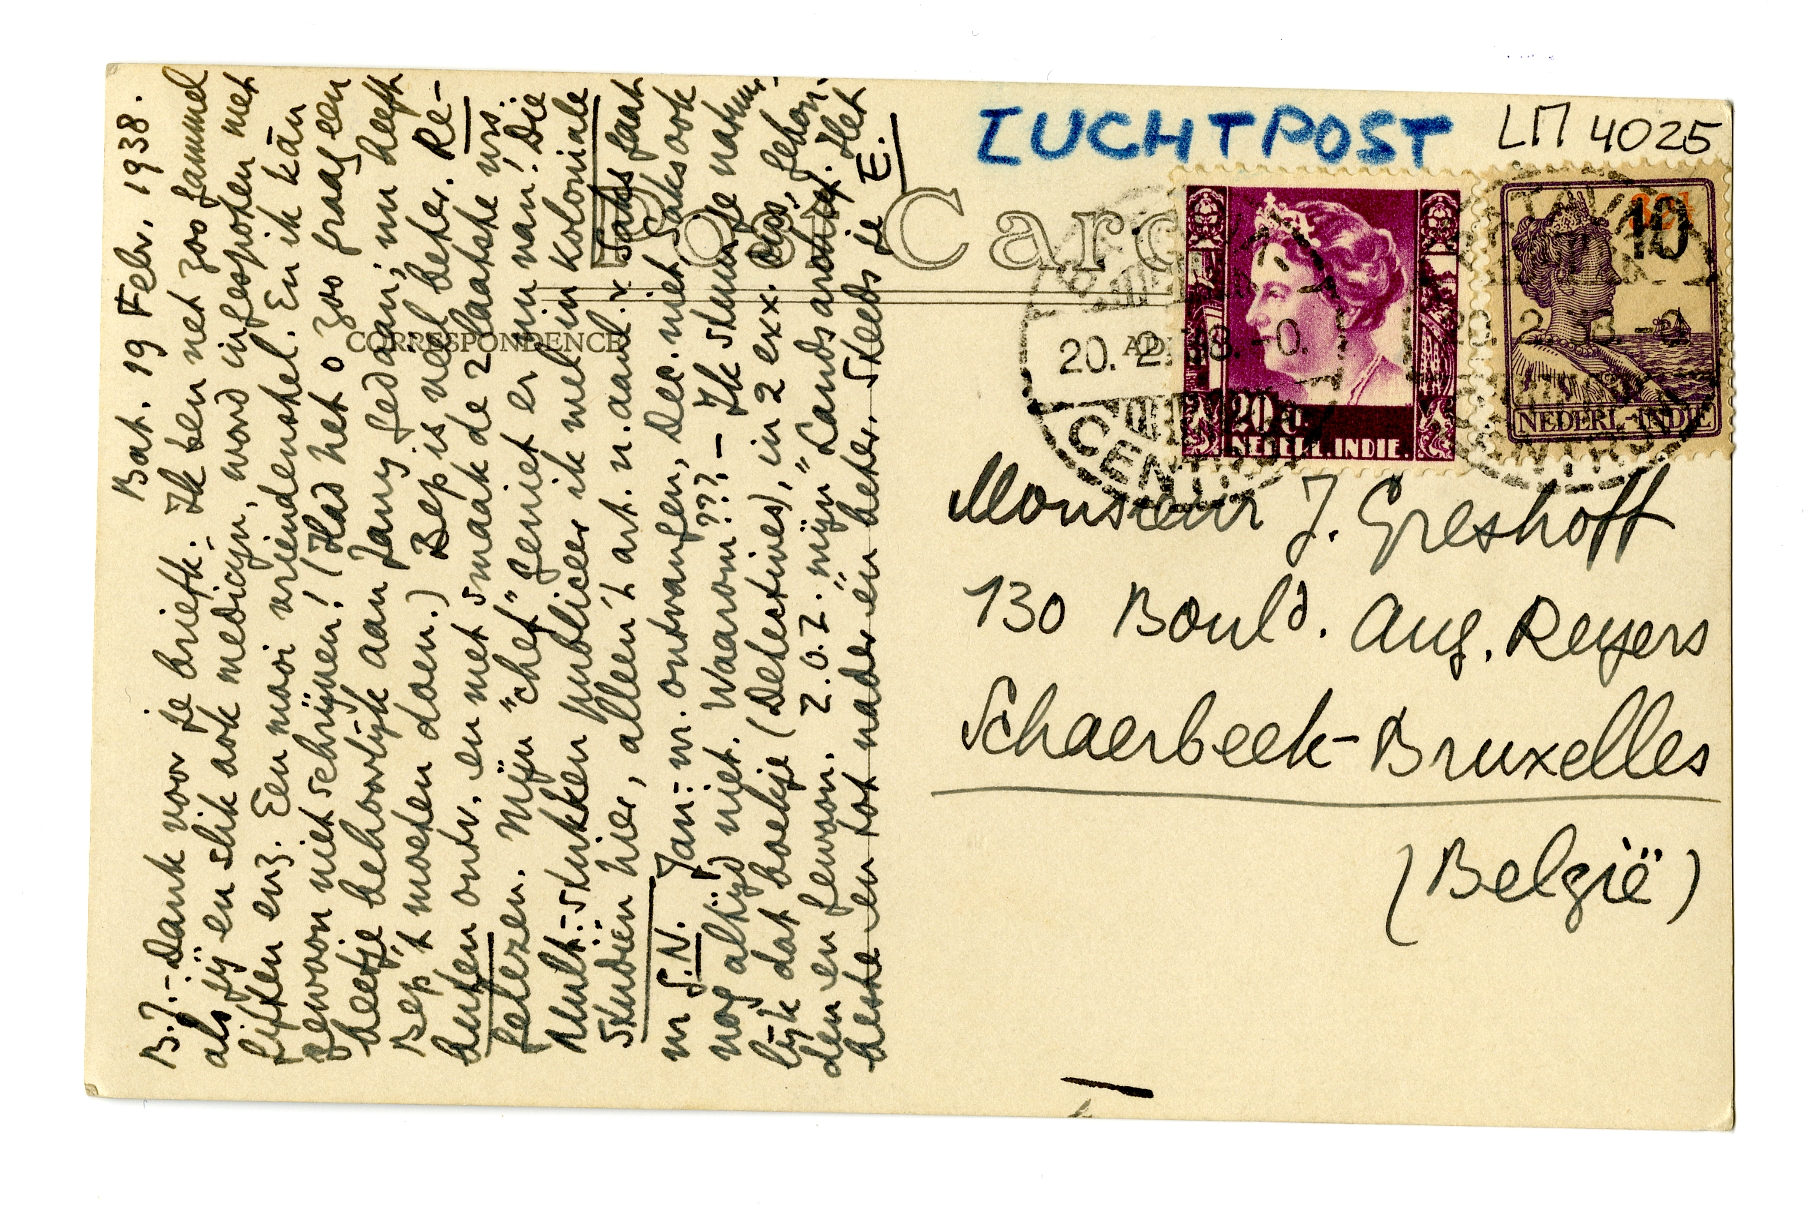 Bat. 19 Febr. 1938.
B.J. - Dank voor je briefk. Ik ben net zoo jammel
als jij en slik ook medicijn, word ingespoten met
giften enz. Een mooi vriendenstel. En ik kàn
gewoon niet schrijven! (Had het o zoo graag een
beetje behoorlijk aan Jany gedaan; nu heeft
Bep 't moeten doen.) Bep is véél beter. Re-
buten ontv. en met smaak de 2 laatste nrs.
gelezen. Mijn "chef" geniet er min van! Die
Mult.-stukken publiceer ik wel in Koloniale
Studiën hier, alleen 't art. n. aanl. v. Saks gaat
in G.N. Jan: nr. ontvangen, Dec. niet, Saks ook
nog altijd niet. Waarom??? - Ik stuur je natuur-
lijk dat boekje (Detectives), in 2 exx. als, gebon-
den en gewoon. Z.O.Z. "mijn" Landsarchief. Het
beste en tot nader en beter. Steeds je E.
Post Card
CORRESPONDENCE
LUCHTPOST
LM 4025
20. 2. 38. -0.
CENTRUM
20 c.
NEDERL. INDIE.
10
NEDERL-INDIË
Monsieur J. Greshoff
130 Bould. Aug. Reyers
Schaerbeek-Bruxelles
(België)